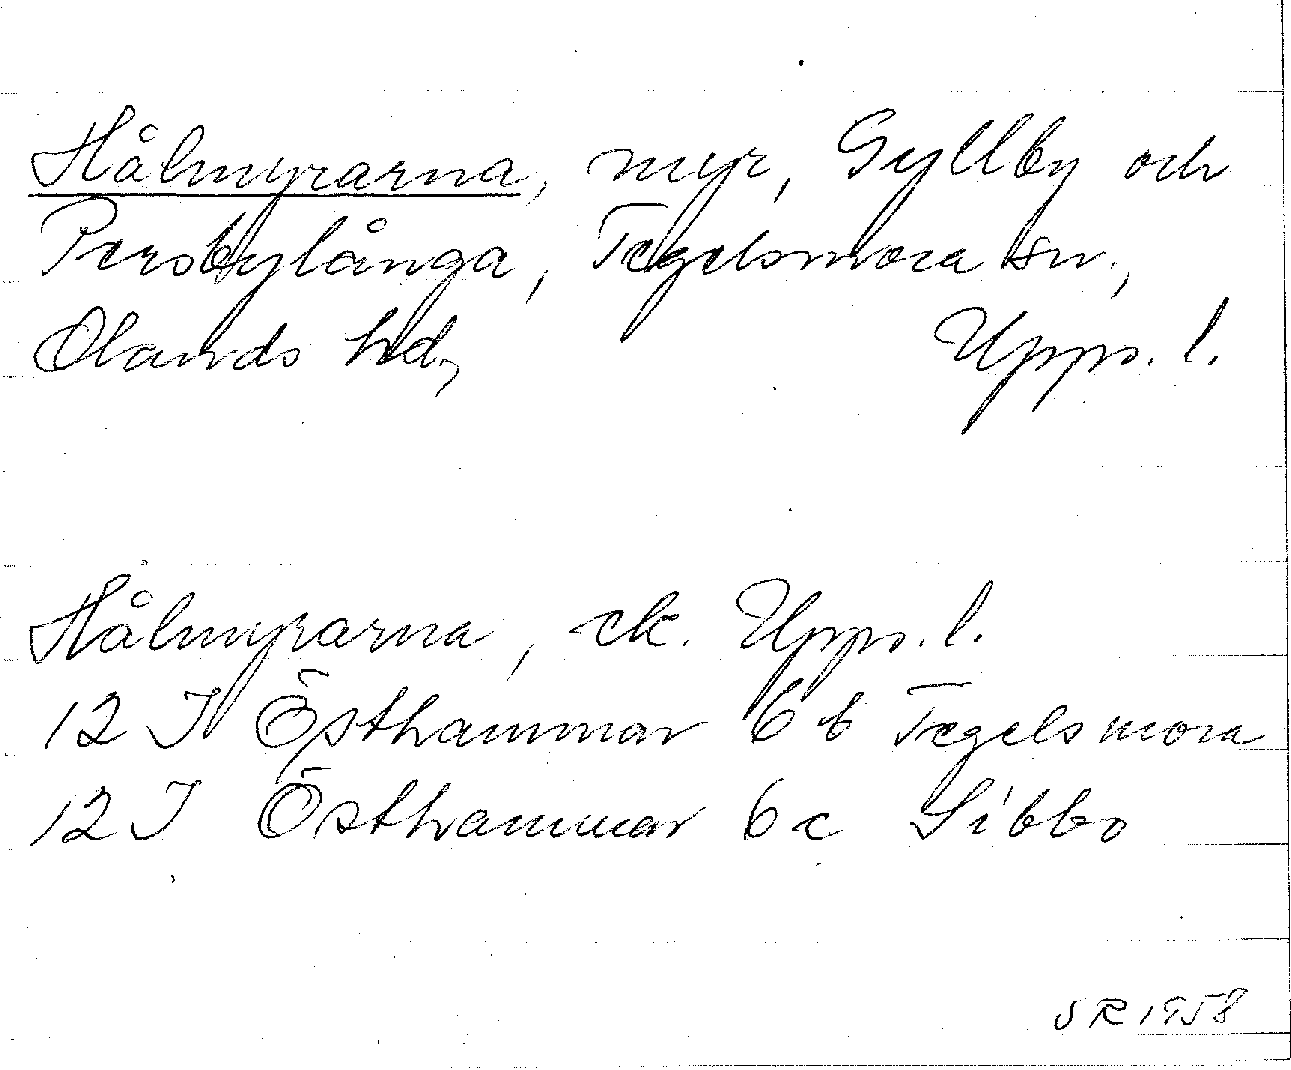 Hålmyrarna, myr, Gyllby och
Persbylånga, Tegelsmora sn.,
Olands hd, Upps. l.
Hålmyrarna, ek. Upps. l.
12 I Östhammar 6 b Tegelsmora
12 I Östhammar 6 c Sibbo
SR 1958